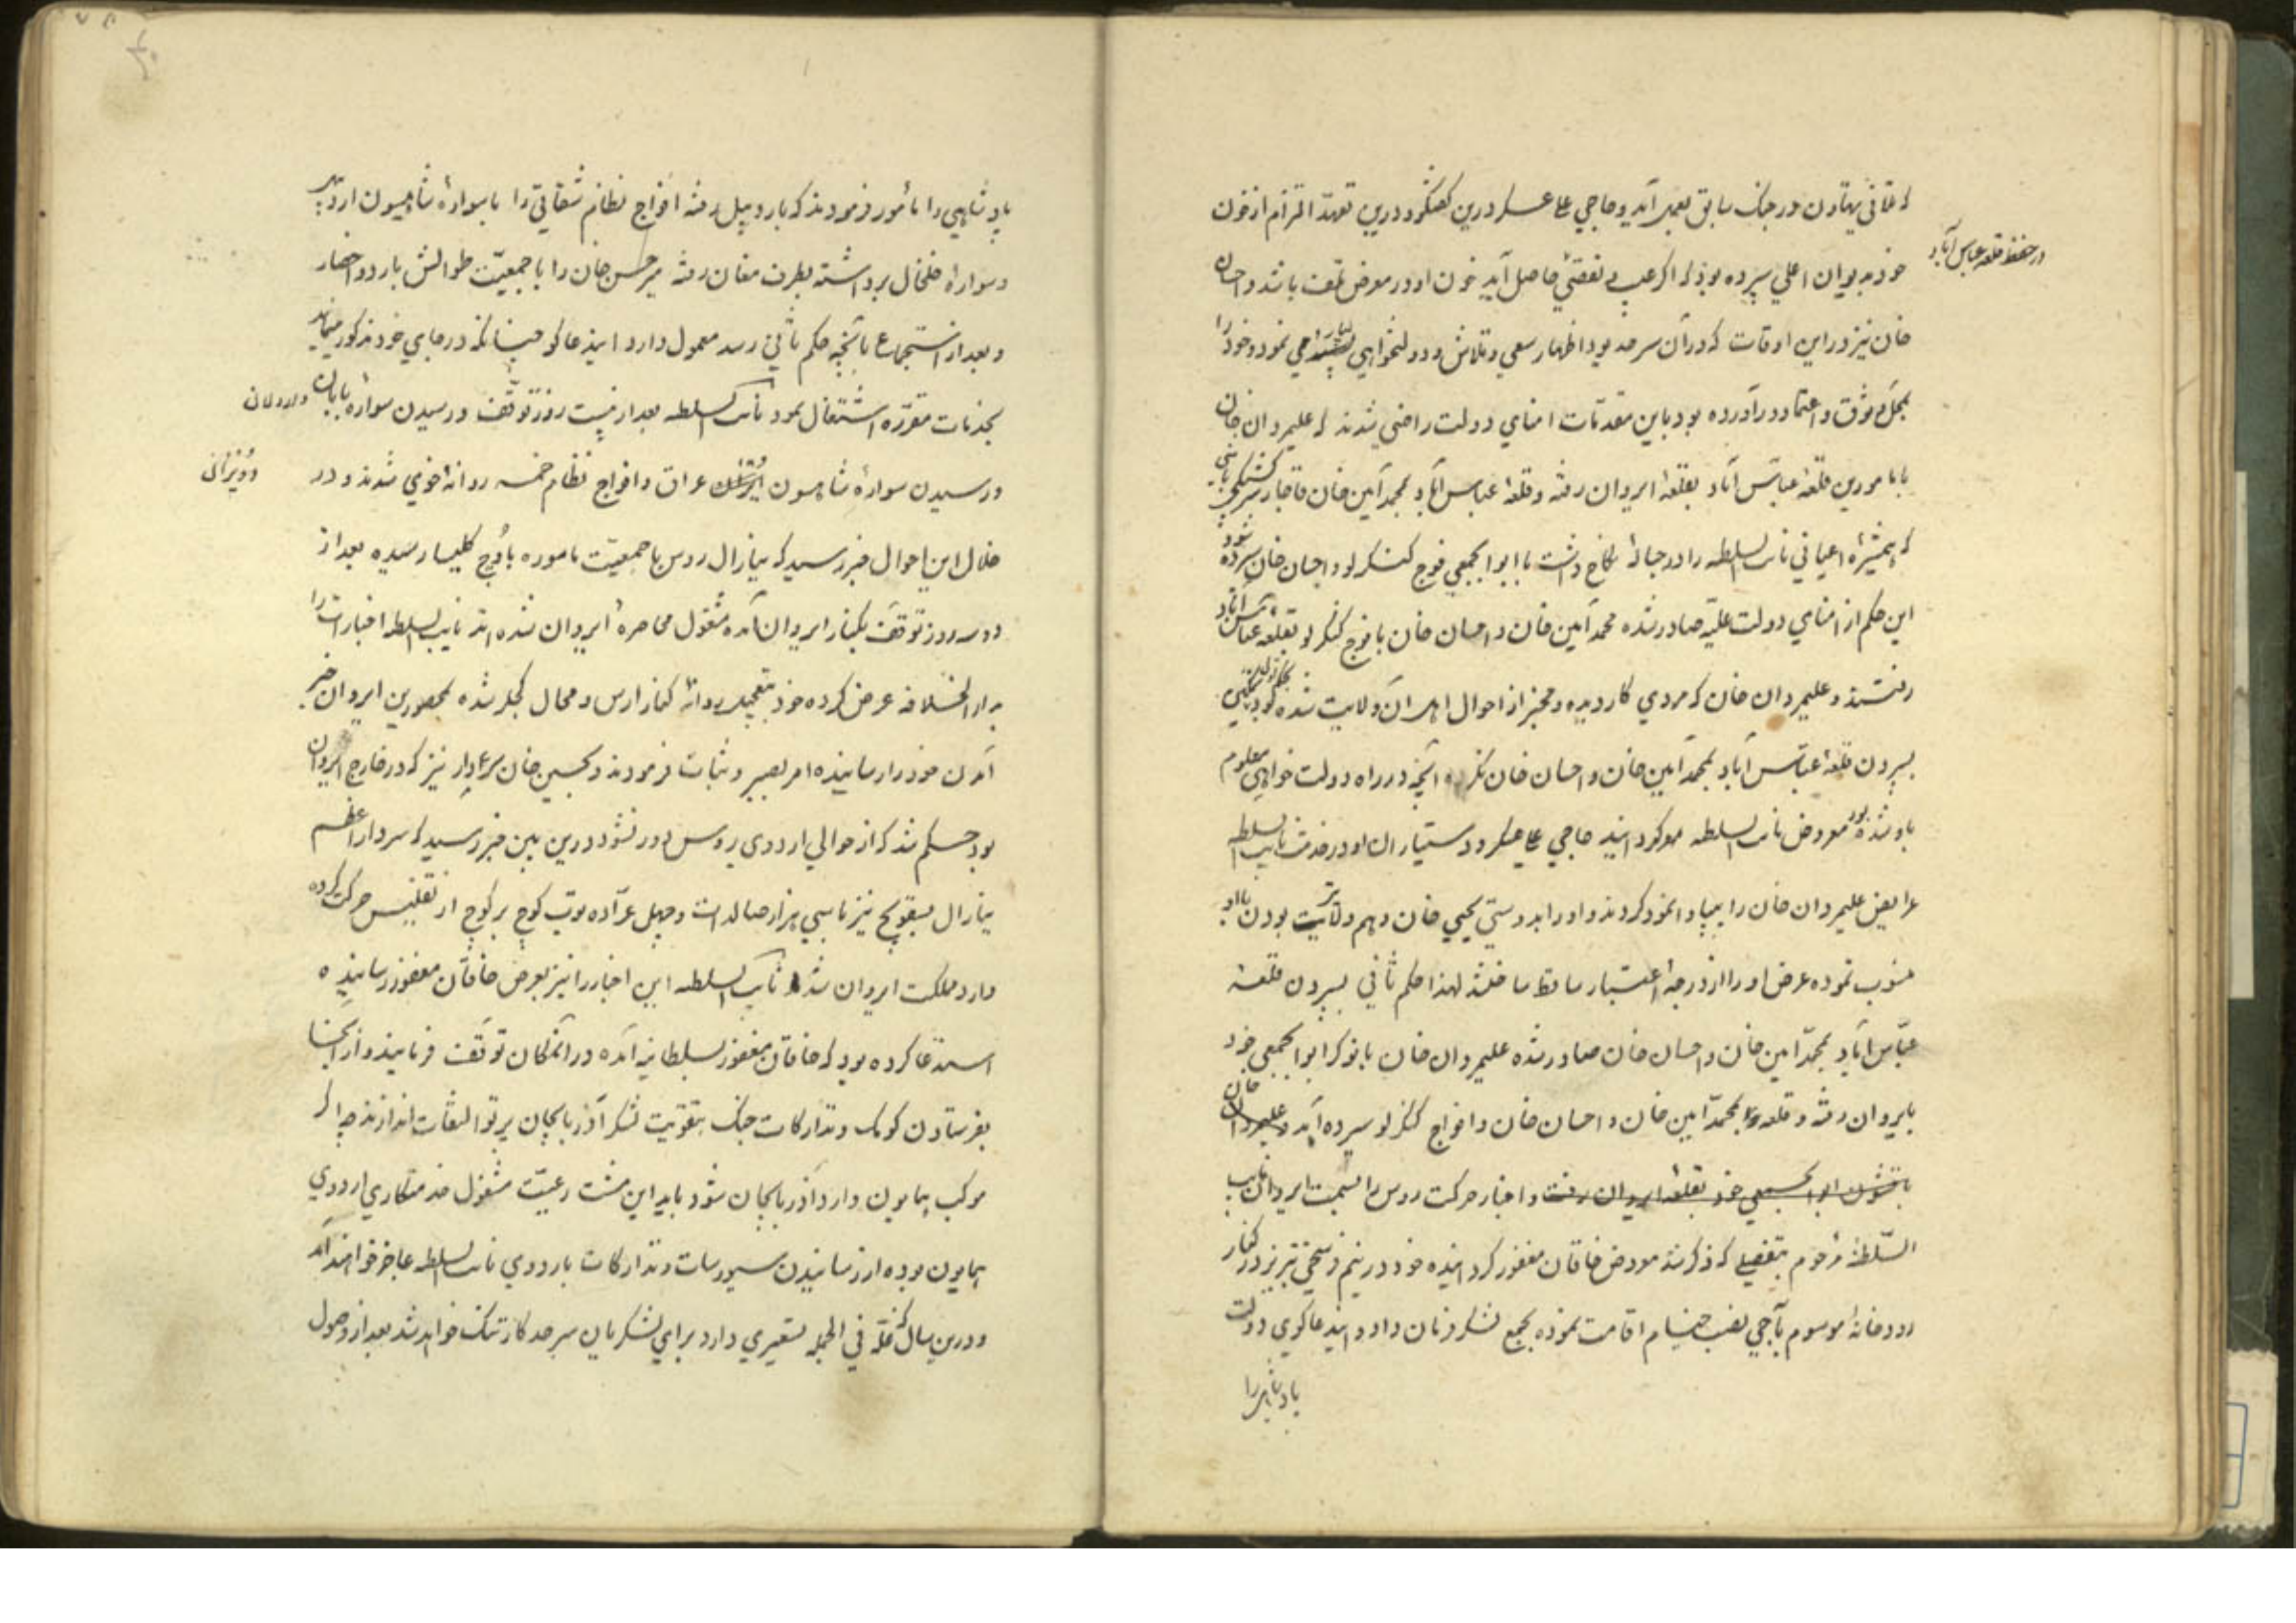 که تلافی تهاون در جنک سابق بعمل آید و حاجی علی عسکر درین کفتکو و درین تعهد التزام از خون
در حفظ قلعه عباس آباد
خود بدیوان اعلی سپرده بود که اکر عیب و نقصی حاصل آید خون او در معرض تلف باشد و احسان
خان نیز در این اوقات که در آن سرحد بود اظهار سعی و تلاش و دولتخواهی بسیار می نمود و خود را
بمحل وثوق و اعتماد در آورده بود باین مقدمات امنای دولت راضی شدند که علیمردان خان
با مامورین قلعه عباس آباد بقلعه ایروان رفته و قلعه عباس آباد بمحمد امین خان قاجار
که همشیره اعیانی نایب السلطه را در حباله نکاح داشت با ابوابجمعی فوج کنکرلو و احسان خان سپرده شود
این حکم از امنای دولت علیه صادر شده محمد امین خان و احسان خان با فوج کنکرلو بقلعه عباس آباد
رفتند و علیمردان خان که مردی کار دیده و مخبر از احوال اهل آن ولایت شده بود
بسپردن قلعه عباس آباد بمحمد امین خان و احسان خان نکرده آنچه در راه دولت خواهی معلوم
باو شده بود معروض نایب السلطه میکردانید حاجی علی عسکر و دستیاران او در خدمت نایب السلطه
عرایض علیمردان خان را بیجا وانمود کردند و او را بدوستی یحیی خان و هم ولایت بودن با او
منسوب نموده عرض او را از درجه اعتبار ساقط ساختند لهذا حکم ثانی بسپردن قلعه
عباس آباد بمحمد امین خان و احسان خان صادر شده علیمردان خان با نوکر ابوابجمعی خود
بایروان رفته و قلعه بمحمد امین خان و احسان خان و افواج کنکرلو سپرده آید و علیمردان خان
با قشون ابوابجمعی خود بقلعه ایروان رفت و اخبار حرکت روس را بسمت ایروان نایب
السلطنه مرحوم بتفصیلی که ذکر شد معروض خاقان مغفور کردانیده خود در نیم فرسخی تبریز در کنار
رودخانه موسوم بآجی نصب خیام اقامت نموده بجمع لشکر فرمان داد و ایند عاکوی دولت
پادشاهی را
پادشاهی را مأمور فرمودند که باردبیل رفته افواج نظام شقاقی را با سواره شاهیسون اردبیل
و سواره خلخال برداشته بطرف مغان رفته میر حسن خان را با جمعیت طوالش باردو احضار
و بعد از استجماع تا آنچه حکم ثانی رسد معمول دارد ایند عاکو چنانکه در جای خود مذکور میاید
بخدمات مقرره اشتغال نمود نایب السلطه بعد از بیست روز توقف و رسیدن سواره بابان
و رسیدن سواره شاهسون عراق و افواج نظام خمسه روانه خوی شدند و در
خلال این احوال خبر رسید که ینارال روس با جمعیت ماموره باوچ کلیسا رسیده بعد از
دو سه روز توقف بکنار ایروان آمده مشغول محاصره ایروان شده اند نایب السلطه اخبارات را
بدار الخلافه عرض کرده خود بتعجیل روانه کنار ارس و محال کچلر شده بمحصورین ایروان خبر
آمدن خود را رسانیده امر بصبر و ثبات فرمودند و بحسین خان سردار نیز که در خارج ایروان
بود حکم شد که از حوالی اردوی روس دور نشود درین بین خبر رسید که سردار اعظم
ینارال بسقویچ نیز با سی هزار صالدات و چهل عراده توپ کوچ بر کوچ از تفلیس حرکت کرده
وارد مملکت ایروان شد نایب السلطه این اخبار را نیز بعرض خاقان مغفور رسانیده
استدعا کرده بود که خاقان مغفور بسلطانیه آمده در آنمکان توقف فرمایند و از آنجا
بفرستادن کومک و تدارکات جنک بتقویت لشکر آذربایجان پرتو التفات اندازند چرا که
موکب همایون وارد آذربایجان شود باید این مشت رعیت مشغول خدمتکاری اردوی
همایون بوده از رسانیدن سیورسات و تدارکات باردوی نایب السلطه عاجز خواهند آمد
و درین سال که غله فی الجمله تسعیری دارد برای لشکریان سرحد کار تنک خواهد شد بعد از وصول